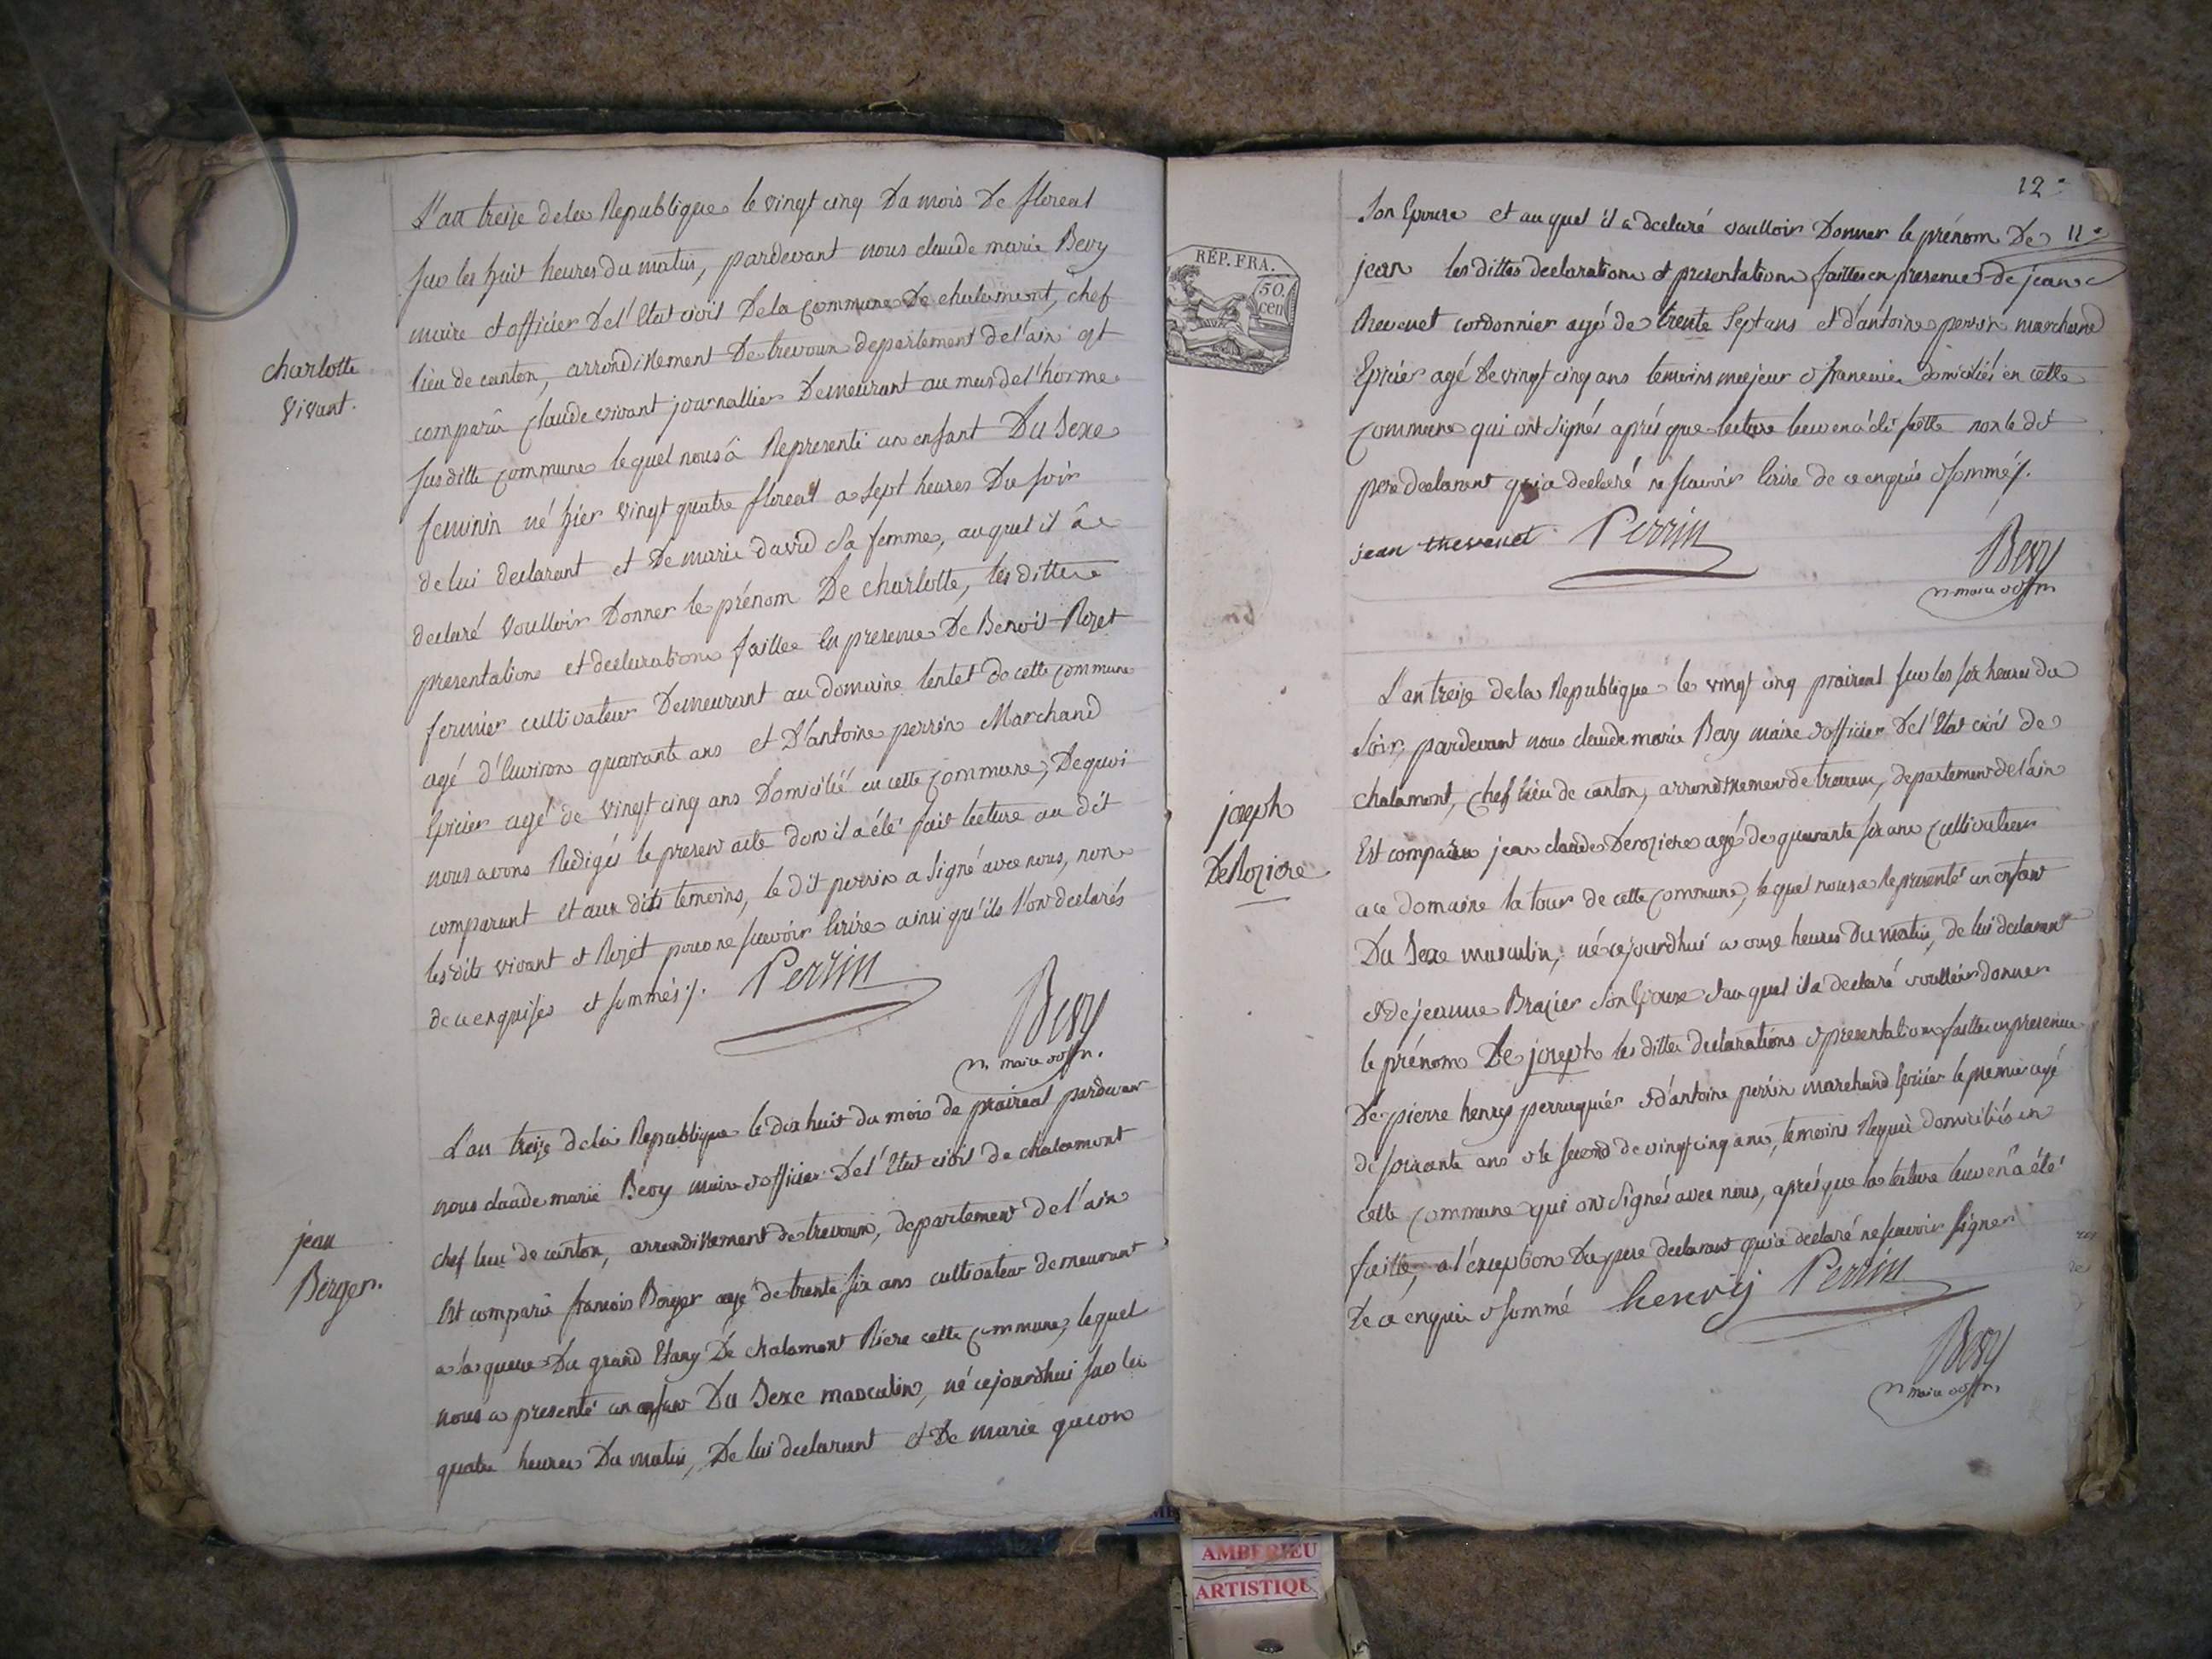 charlotte
vivant.
L'an treize de la Republique le vingt cinq Du mois De floreal
sur les huit heures du matin, pardevant nous claude marie Bevy
maire et officier De l'Etat civil De la Commune De chalamont, chef
lieu de canton, arrondissement De trevoux departement de l'ain est
comparû Claude vivant journallier Demeurant au mas de l'horme
susditte Commune le quel nous â Representé un enfant Du Sexe
feminin né hier vingt quatre floreal a sept heures Du soir
de lui declarant et De marie david Sa femme, auquel il â
declaré voulloir Donner le prénom De charlotte, les dittes
presentation et declaration faittes En presence De Benoit Rozet
fermier cultivateur Demeurant au domaine de cette commune
agé d'Environ quarante ans et D'antoine perrin Marchand
Epicier agé de vingt cinq ans Domicilié en cette Commune, De quoi
nous avons Redigés le present acte dont il a été fait lecture au dit
comparant et aux dits temoins, le dit perrin a signé avec nous, non
les dits vivant et Rozet pour ne scavoir Ecrire ainsi qu'ils l'ont declarés
de ce enquises et sommés ./. Perrin
Bevy
maire
jean
Berger.
L'an treize de la Republique le dix huit du mois de praireal pardevant
nous claude marie Bevy maire & officier De l'Etat civil de chalamont
chef lieu de canton, arrondissement de trevoux, departement de l'ain
Est comparû francois Berger agé de trente six ans cultivateur demeurant
a la queue Du grand Etang De chalamont Riere cette Commune, lequel
nous a presenté un enfant Du Sexe masculin, né cejourdhui sur les
quatre heures Du matin, De lui declarant et De marie guion
12
RÉP. FRA.
50.
cen
Son Epouse et au quel il a declaré voulloir Donner le prénom De 11
jean les dittes declaration et presentation faittes en presence de jean
thevenet cordonnier agé de trente Sept ans et d'antoine perrin marchand
Epicier agé De vingt cinq ans temoins majeur & domiciliés en cette
Commune qui ont signés aprés que lecture leur en â été faitte non le dit
pere declarant qui a declaré ne scavoir Ecrire de ce enquis & sommés ./.
jean thevenet Perrin
Bevy
maire
joseph
DeRoziere
L'an treize de la Republique le vingt cinq praireal sur les six heures du
Soir, pardevant nous claude marie Bevy maire & officier De l'Etat civil de
chalamont, Chef lieu de canton, arrondissement de trevoux, departement de l'ain
Est comparu jean claude Deroziere agé de quarante six ans Cultivateur
au domaine la tour de cette Commune, lequel nous a Representé un enfant
Du Sexe masculin, né cejourdhui a onze heures Du matin, de lui declarant
& de jeanne Brazier Son Epouse & auquel il a declaré voulloir donner
le prénom De joseph les dittes declarations & presentation faittes en presence
De pierre henry perruquier & d'antoine perrin marchand Epicier le premier agé
de soixante ans & le second de vingt cinq ans, temoins Requis domiciliés en
cette Commune qui ont Signés avec nous, aprés que la lecture leur en â été
faitte, a l'exception Du pere declarant qui a declaré ne scavoir signer
De ce enquis & sommé henry Perrin
Bevy
maire
AMBERIEU
ARTISTIQUE